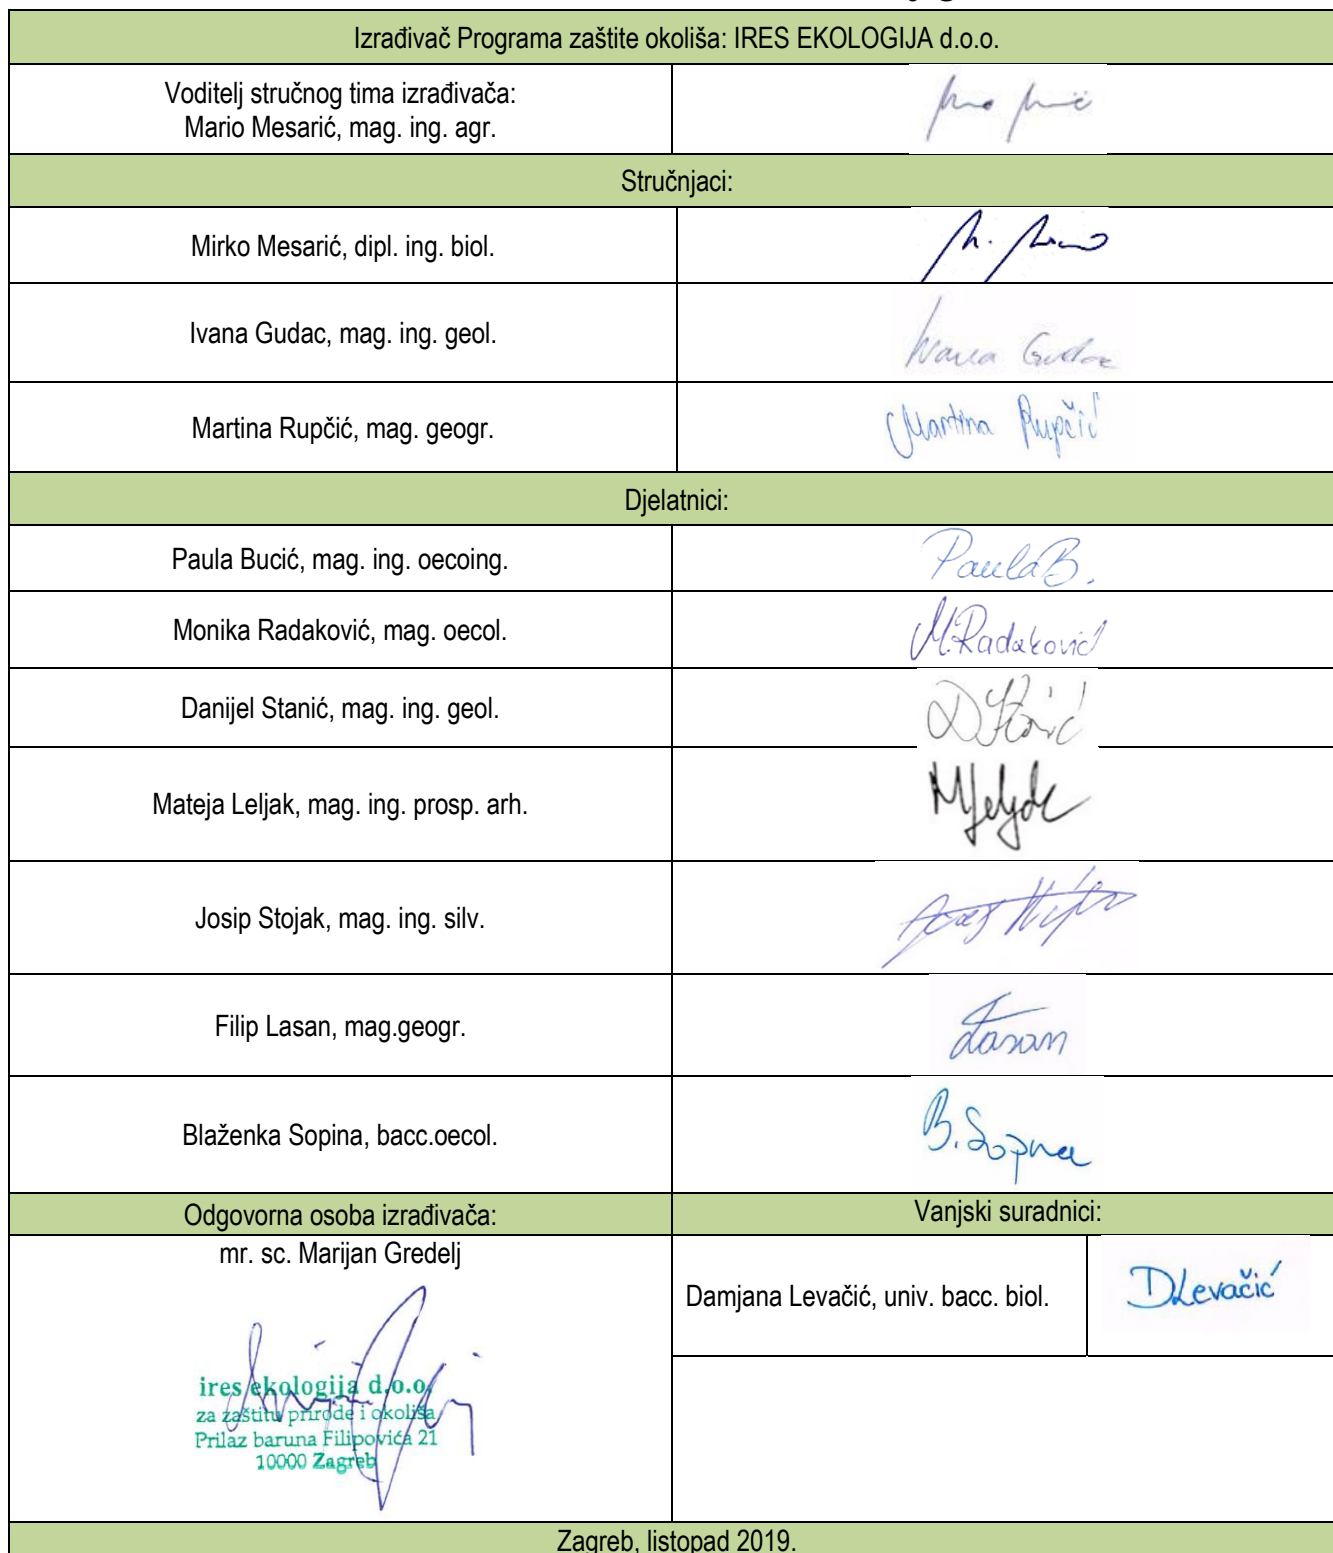 Izrađivač Programa zaštite okoliša: IRES EKOLOGIJA d.o.o.
Voditelj stručnog tima izrađivača:
Mario Mesarić, mag. ing. agr.
Stručnjaci:
Mirko Mesarić, dipl. ing. biol.
Ivana Gudac, mag. ing. geol.
Ivana Gudac
Martina Rupčić, mag. geogr.
Martina Rupčić
Djelatnici:
Paula Bucić, mag. ing. oecoing.
Paula B.
Monika Radaković, mag. oecol.
M. Radaković
Danijel Stanić, mag. ing. geol.
Mateja Leljak, mag. ing. prosp. arh.
Josip Stojak, mag. ing. silv.
Filip Lasan, mag.geogr.
Lasan
Blaženka Sopina, bacc.oecol.
B. Sopina
Odgovorna osoba izrađivača:
Vanjski suradnici:
mr. sc. Marijan Gredelj
Damjana Levačić, univ. bacc. biol.
DLevačić
ires ekologija d.o.o.
za zaštitu prirode i okoliša
Prilaz baruna Filipovića 21
10000 Zagreb
Zagreb, listopad 2019.